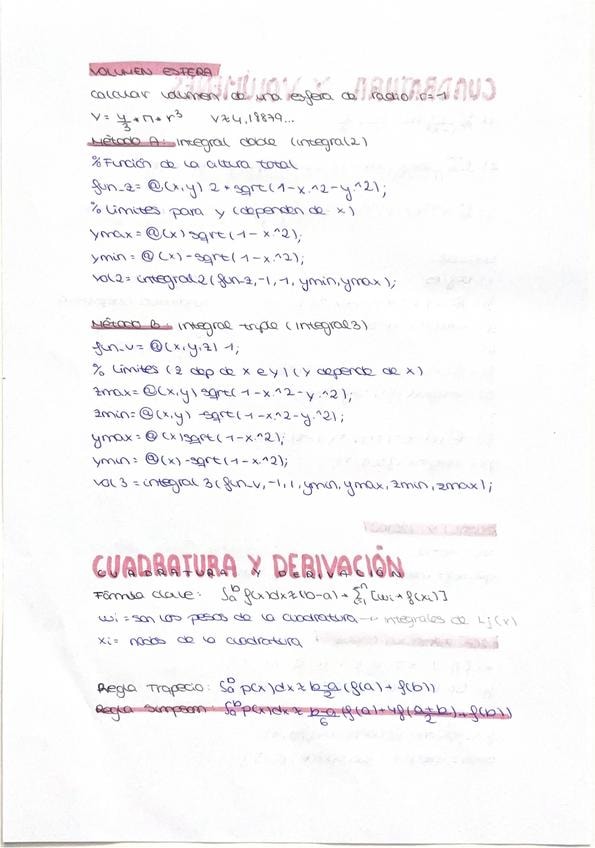 VOLUMEN ESFERA
calcular volumen de una esfera de radio r=1
V = 4/3 * π * r³ V≈4,18879...
Método A: integral doble (integral2)
% Función de la altura total
fun_z = @(x,y) 2*sqrt(1-x.^2-y.^2);
% Limites para y (dependen de x)
ymax = @(x) sqrt(1-x.^2);
ymin = @(x) -sqrt(1-x.^2);
vol2 = integral2(fun_z,-1,1,ymin,ymax);
Método B: integral triple (integral3)
fun_v = @(x,y,z) 1;
% Limites (z dep de x e y) (y depende de x)
zmax = @(x,y) sqrt(1-x.^2-y.^2);
zmin = @(x,y) -sqrt(1-x.^2-y.^2);
ymax = @(x) sqrt(1-x.^2);
ymin = @(x) -sqrt(1-x.^2);
vol3 = integral3(fun_v,-1,1,ymin,ymax,zmin,zmax);
CUADRATURA Y DERIVACIÓN
Fórmula clave: ∫ₐᵇ f(x)dx ≈ (b-a) * Σⁿᵢ₌₁ [wi * f(xi)]
wi = son los pesos de la cuadratura → integrales de Lj(x)
xi = nodos de la cuadratura
Regla Trapecio: ∫ₐᵇ p(x)dx ≈ b-a/2 (f(a) + f(b))
Regla Simpson: ∫ₐᵇ p(x)dx ≈ b-a/6 (f(a)+4f(a+b/2)+f(b))